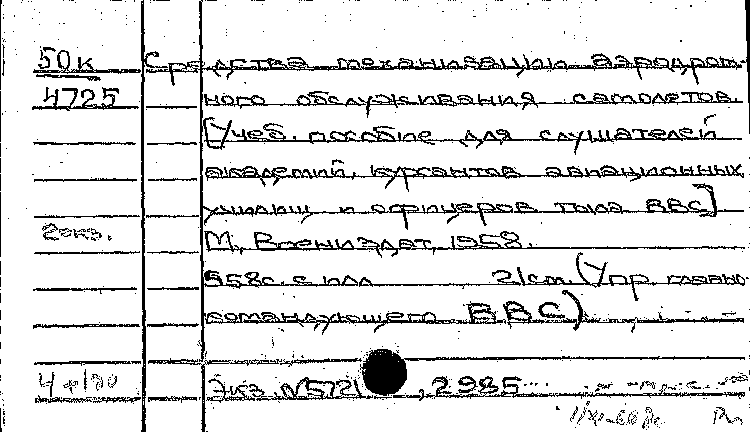 50к Средства механизации аэродром-
4725 ного обслуживания самолетов.
[Учеб. пособие для слушателей
академий, курсантов авиационных
училищ и офицеров тыла ВВС]
2 экз. М., Воениздат, 1958.
558с. с илл 21см. (Упр. главно-
командующего ВВС)
Экз. №5721, 2985